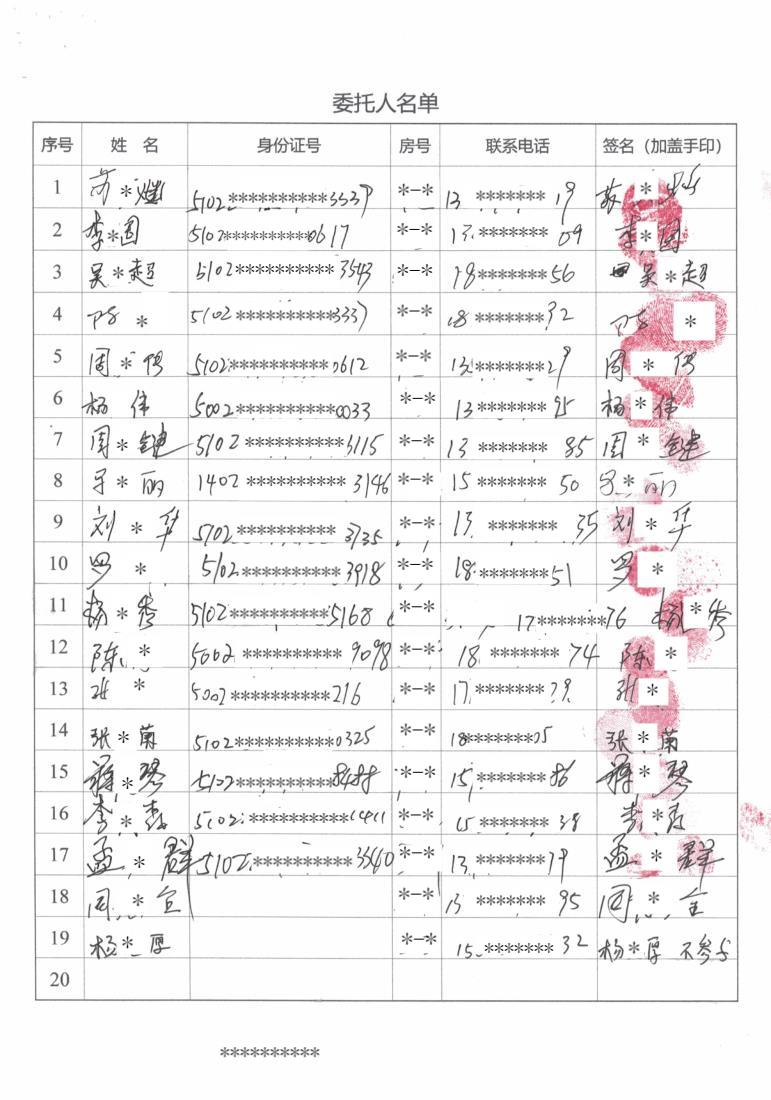 委托人名单
序号 姓 名 身份证号 房号 联系电话 签名（加盖手印）
1 苏*灿 5102**********3539 *-* 13 ******* 19 苏*灿
2 李*国 5102**********0617 *-* 13.******* 09 李*国
3 吴*超 5102********** 3543 *-* 18*******56 吴*超
4 * 5102**********3337 *-* 18 *******32 *
5 周* 5102**********0612 *-* 13.*******29 周 *
6 杨 伟 5002**********0033 *-* 13 ******* 95 杨*伟
7 周*键 5102 **********3115 *-* 13 ******* 85 周 * 键
8 *丽 1402 ********** 3146 *-* 15 ******* 50 * 丽
9 刘 * 华 5102********** 3735 *-* 13 ******* 35 刘 * 华
10 罗 * 5102********** 3918 *-* 18.*******51 罗 *
11 杨*秀 5102**********5168 *-* 17*******76 杨*秀
12 陈. * 5002 ********** 9098 *-* 18 ******* 74 陈 *
13 张 * 5002**********216 *-* 17.*******29 张 *
14 张*菊 5102**********0325 *-* 18*******05 张*菊
15 蒋*琴 5102**********8488 *-* 15.*******86 蒋*琴
16 李*森 5102.**********1411 *-* 15 ******* 38 李*森
17 孟 * 群 5102.**********3340 *-* 13.*******79 孟 * 群
18 周 * *-* 13 ******* 95 周 *
19 杨*厚 *-* 15.******* 32 杨*厚 不参与
20
**********